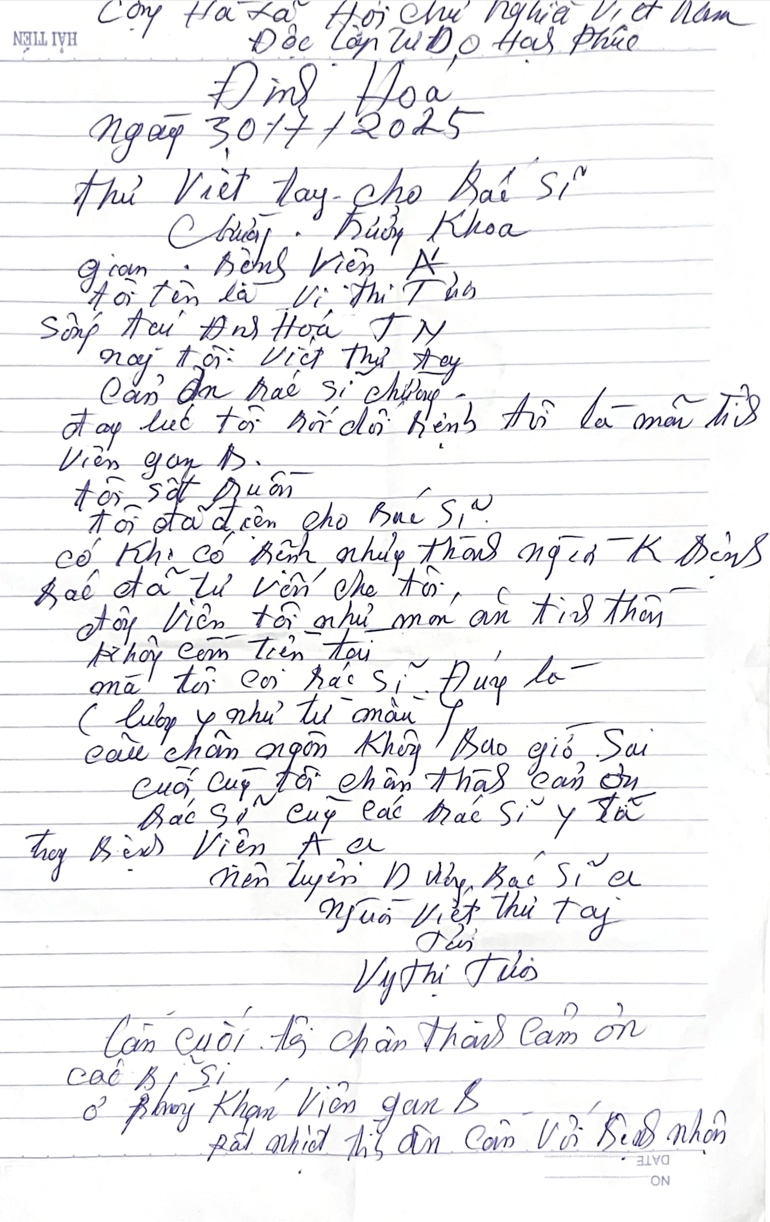 Cộng Hà Xã Hội Chủ Nghĩa Việt Nam
HẢI TIẾN
Độc Lập Tư Do Hạh Phúc
Định Hoá
ngày 30/7/2025
thư Viết tay cho Bác Sĩ
Chường. Trưởng Khoa
gian. Bệnh Viện A
tôi tên là Vi Thị Tươi
Sống tại Định Hoá TN
nay tôi Viết thư tay
Cảm ơn Bác Sĩ chường
đay lúc tôi bối dối Bệnh tôi là mãn tíh
Viên gan B.
tôi sất Buồn
tôi đã điện cho Bác Sĩ
có Khi có Bệnh nhưng thành nghĩa K Bệnh
Bác đã tư vấn cho tôi,
động Viên tôi như món ăn tinh thần
Không cần tiền tai
mà tôi coi Bác Sĩ Đúng là
( lương y như từ mẫu )
câu chân ngôn Không Bao giờ Sai
cuối cùng tôi chân thành cản ơn
Bác Sĩ cùng các Bác Sĩ y tá
trong Bệnh Viện A ạ
nên tuyên Dương Bác Sĩ ạ
người Viết thư tay
Tươi
Vy thị Tươi
Lần cuối tôi chân thành cảm ơn
các B Sĩ
ở phòng Khán Viên gan B
rất nhiệt tih ân cần Với Bệnh nhân
DATE
NO